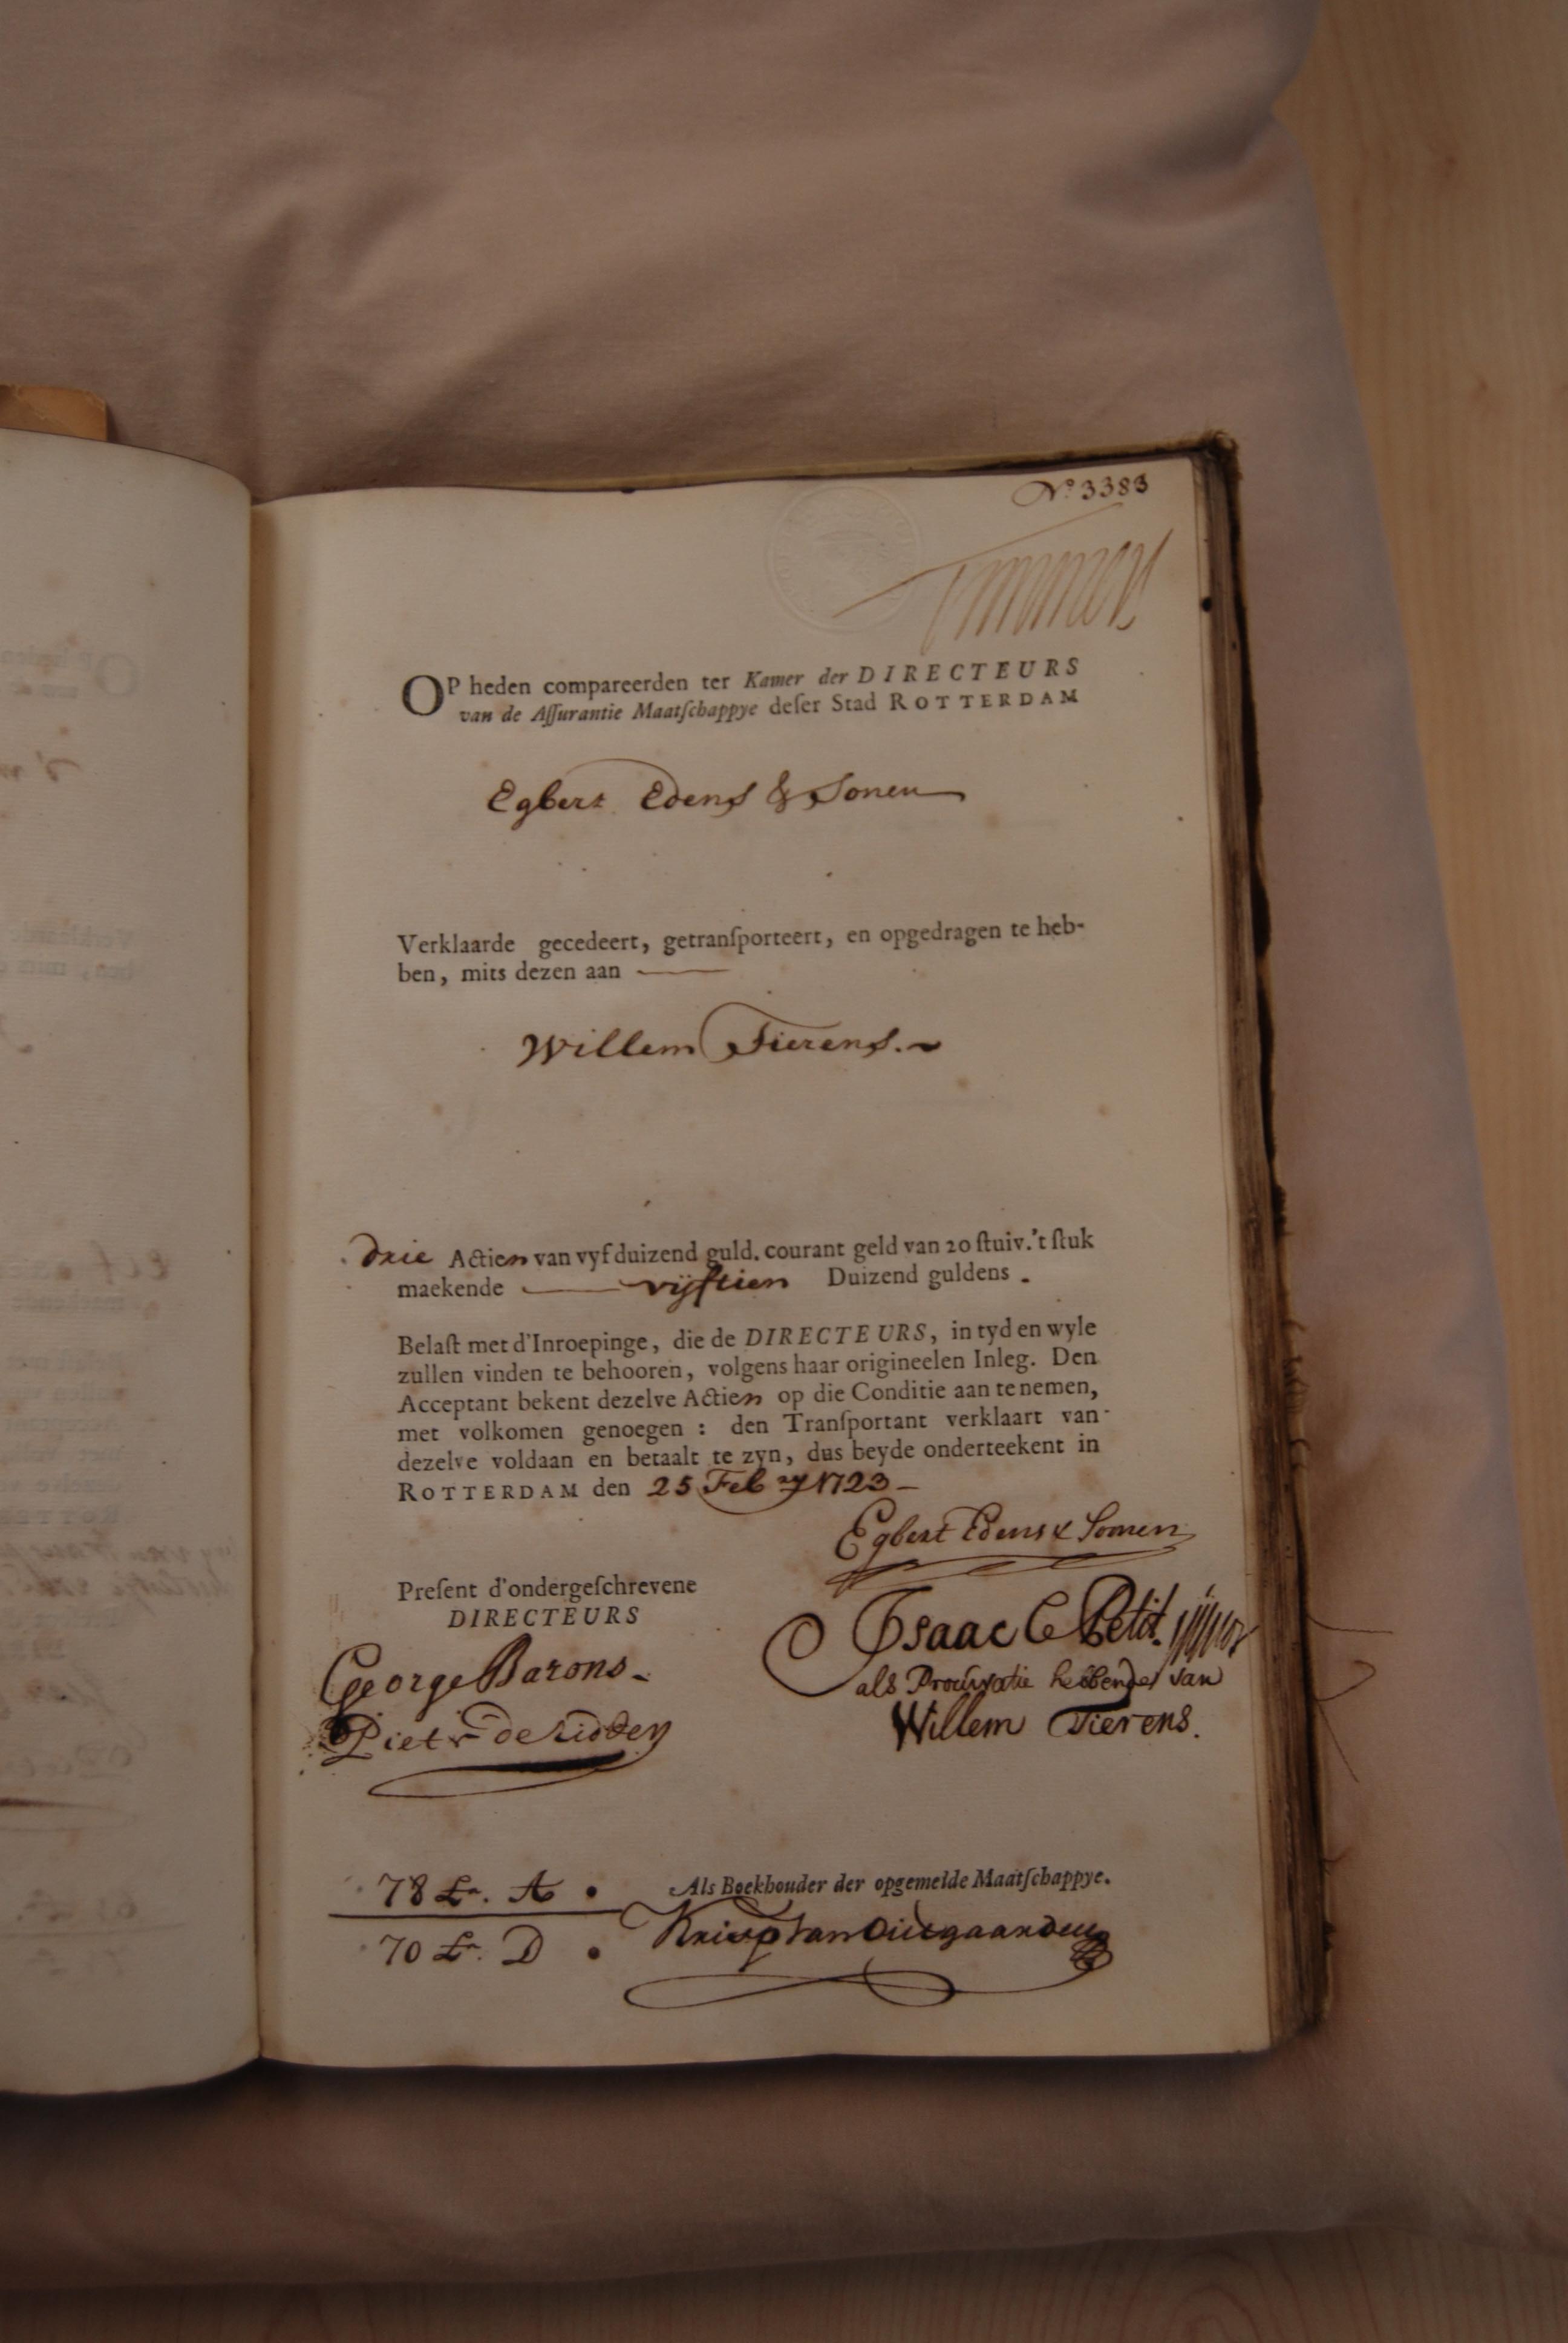 No. 3383
OP heden compareerden ter Kamer der DIRECTEURS
van de Aſſurantie Maatſchappye deſer Stad ROTTERDAM
Egbert Edens & Sonen
Verklaarde gecedeert, getranſporteert, en opgedragen te heb-
ben, mits dezen aan
Willem Tierens.
drie Actien van vyf duizend guld. courant geld van 20 ſtuiv. 't ſtuk
maekende vijftien Duizend guldens.
Belaſt met d'Inroepinge, die de DIRECTEURS, in tyd en wyle
zullen vinden te behooren, volgens haar origineelen Inleg. Den
Acceptant bekent dezelve Actien op die Conditie aan te nemen,
met volkomen genoegen: den Tranſportant verklaart van
dezelve voldaan en betaalt te zyn, dus beyde onderteekent in
ROTTERDAM den 25 Feb ry 1723
Egbert Edens & Sonen
Preſent d'ondergeſchrevene
DIRECTEURS
Isaac le Petit
George Barons
als Procuratie hebbende van
Pieter de Ridder
Willem Tierens.
78 Lr. A
Als Boekhouder der opgemelde Maatſchappye.
70 Lr. D